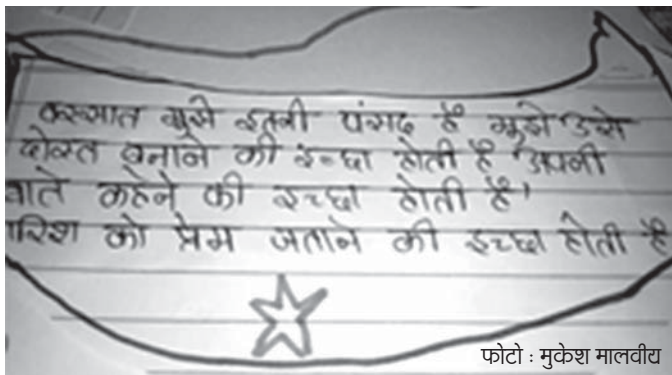 बरसात मुझे इतनी पंसद है मुझे उसे
दोस्त बनाने की इच्छा होती है अपनी
बाते कहेने की इच्छा होती है।
ारिश को प्रेम जताने की इच्छा होती है
फोटो : मुकेश मालवीय